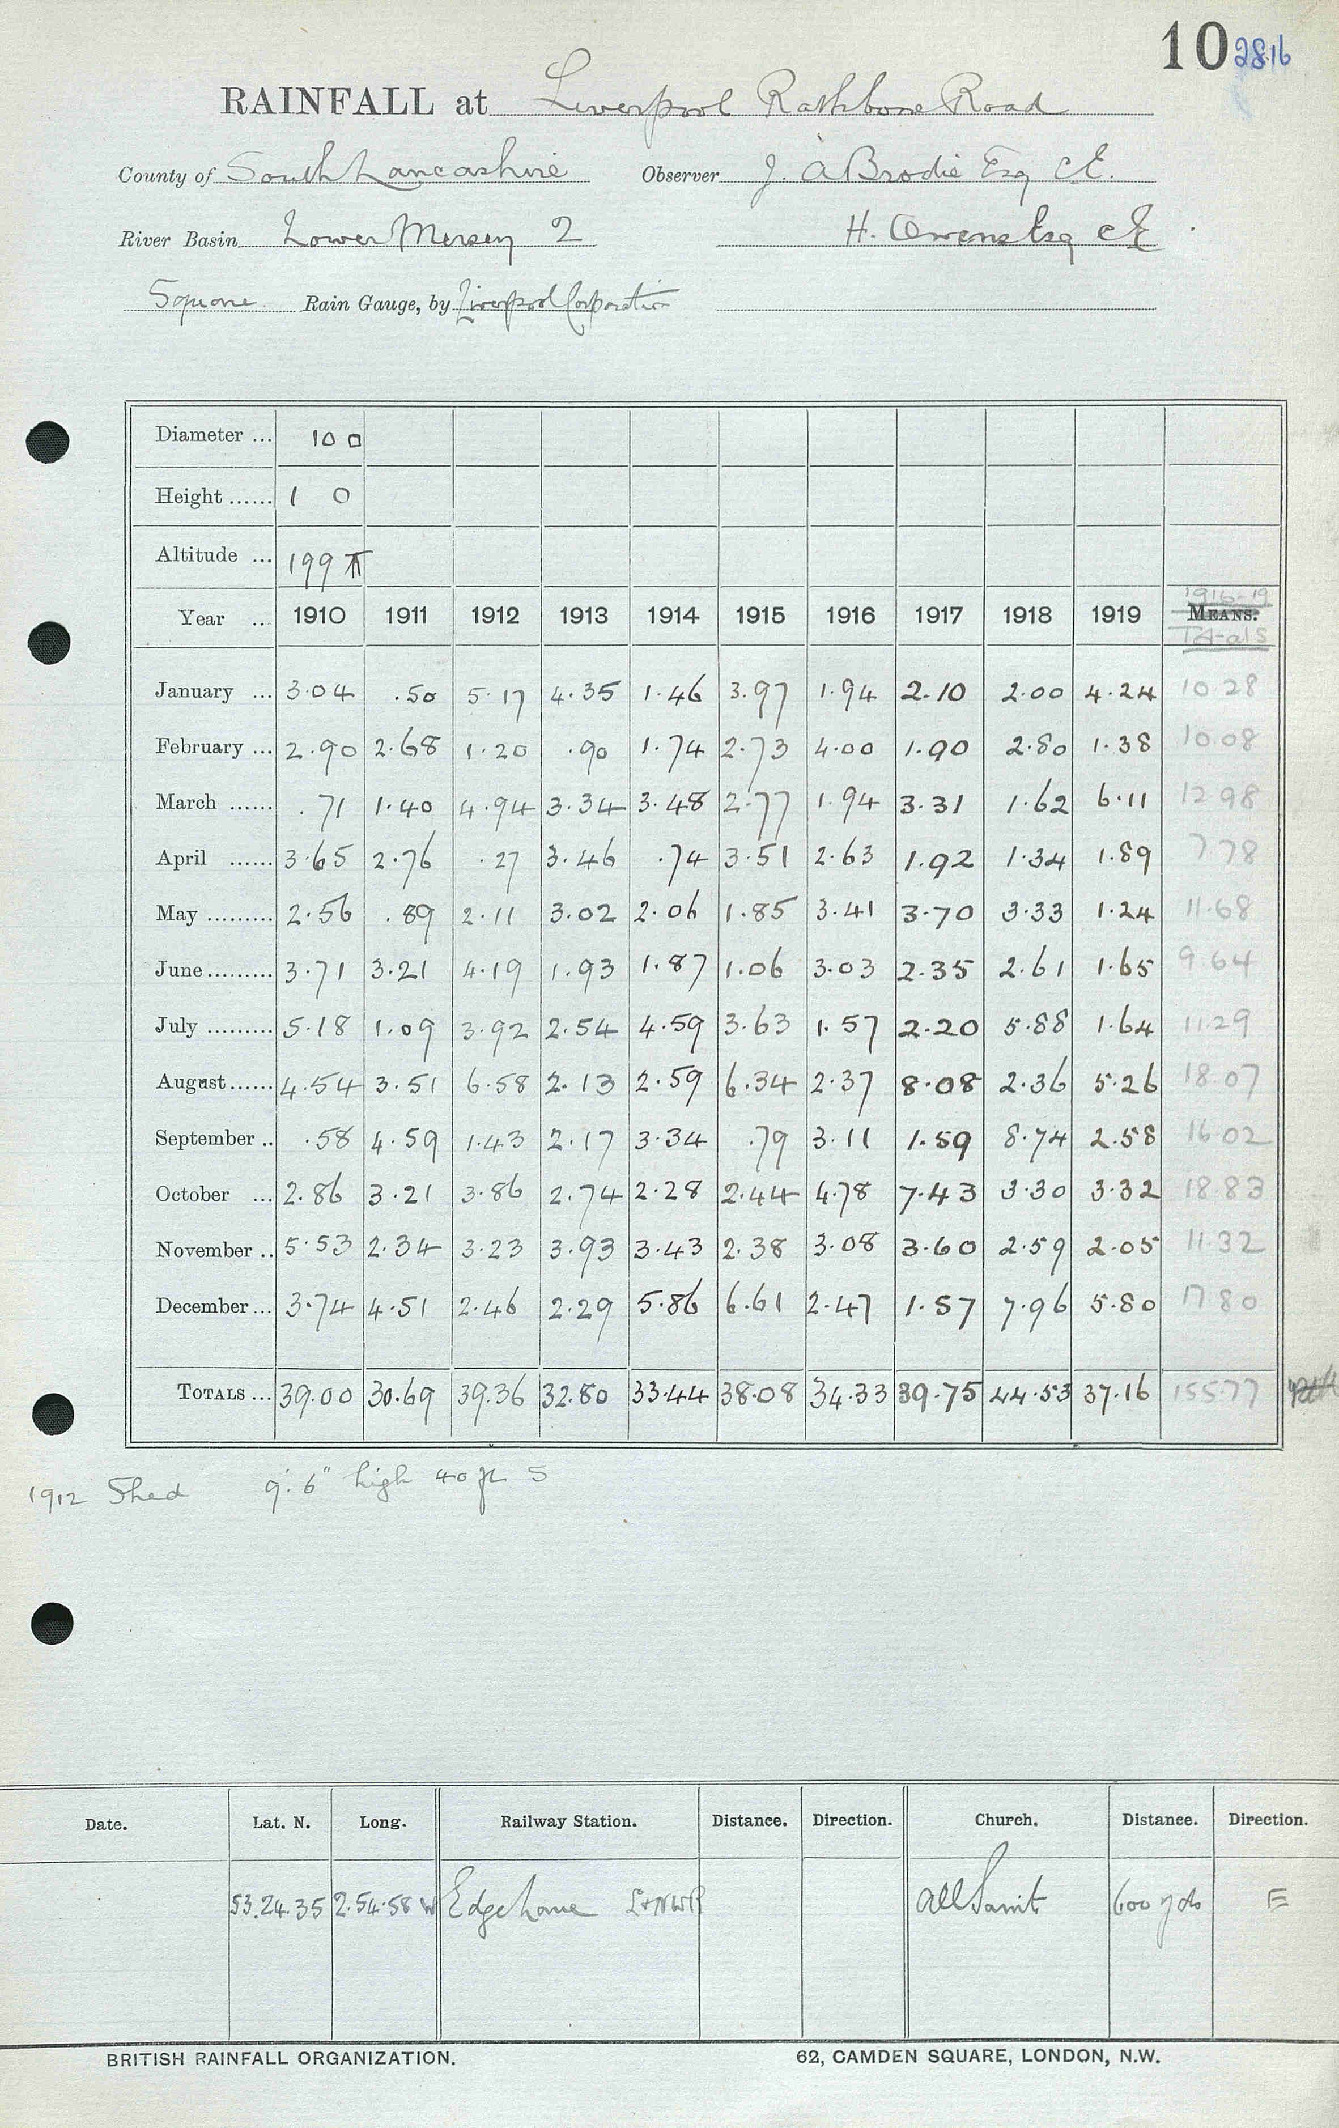 10 2816
RAINFALL at Liverpool Rathbone Road
County of South Lancashire Observer J. A Brodie Esq CE.
River Basin Lower Mersey 2 H. Owens Esq CE
Square Rain Gauge, by Liverpool Corporation
Diameter ... 10 □
Height ...... 1 0
Altitude ... 199 T
1916-19
Year ... 1910 1911 1912 1913 1914 1915 1916 1917 1918 1919 MEANS.
Totals
January ... 3.04 .50 5.17 4.35 1.46 3.97 1.94 2.10 2.00 4.24 10.28
February ... 2.90 2.68 1.20 .90 1.74 2.73 4.00 1.90 2.80 1.38 10.08
March ...... .71 1.40 4.94 3.34 3.48 2.77 1.94 3.31 1.62 6.11 12.98
April ...... 3.65 2.76 .27 3.46 .74 3.51 2.63 1.92 1.34 1.89 7.78
May ......... 2.56 .89 2.11 3.02 2.06 1.85 3.41 3.70 3.33 1.24 11.68
June ......... 3.71 3.21 4.19 1.93 1.87 1.06 3.03 2.35 2.61 1.65 9.64
July ......... 5.18 1.09 3.92 2.54 4.59 3.63 1.57 2.20 5.88 1.64 11.29
August ...... 4.54 3.51 6.58 2.13 2.59 6.34 2.37 8.08 2.36 5.26 18.07
September .. .58 4.59 1.43 2.17 3.34 .79 3.11 1.59 8.74 2.58 16.02
October ... 2.86 3.21 3.86 2.74 2.28 2.44 4.78 7.43 3.30 3.32 18.83
November .. 5.53 2.34 3.23 3.93 3.43 2.38 3.08 3.60 2.59 2.05 11.32
December ... 3.74 4.51 2.46 2.29 5.86 6.61 2.47 1.57 7.96 5.80 17.80
TOTALS ... 39.00 30.69 39.36 32.80 33.44 38.08 34.33 39.75 44.53 37.16 155.77
1912 Shed 9'.6" high 40 ft S
Date. Lat. N. Long. Railway Station. Distance. Direction. Church. Distance. Direction.
53.24.35 2.54.58 W Edge Lane L&NWR All Saints 600 yds E
BRITISH RAINFALL ORGANIZATION. 62, CAMDEN SQUARE, LONDON, N.W.